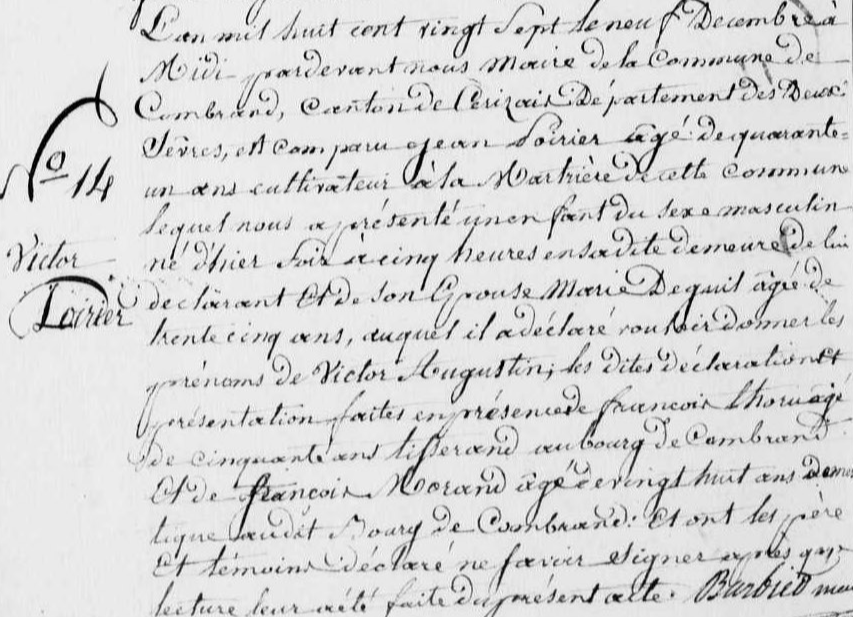 L'an mil huit cent vingt Sept le neuf Decembre à
Midi pardevant nous Maire de la Commune de
Combrand, Canton de Cerizais Département des Deux
Sèvres, est comparu jean Poirier âgé de quarante=
un ans cultivateur à la Martrière de cette Commune
lequel nous a présenté un enfant du sexe masculin
né d'hier Soir à cinq heures en sa dite demeure de lui
déclarant Et de son Epouse Marie Deguil âgée de
trente cinq ans, auquel il a déclaré vouloir donner les
prénoms de Victor Augustin; les dites déclaration Et
présentation faites en présence de francois Thoru âgé
de cinquante ans tisserand au bourg de Combrand
Et de francois Morand âgé de vingt huit ans Domes
tique audit Bourg de Combrand: Et ont les père
Et témoins déclaré ne savoir signer après que
lecture leur a été faite du présent acte. Barbier mai
No 14
Victor
Poirier